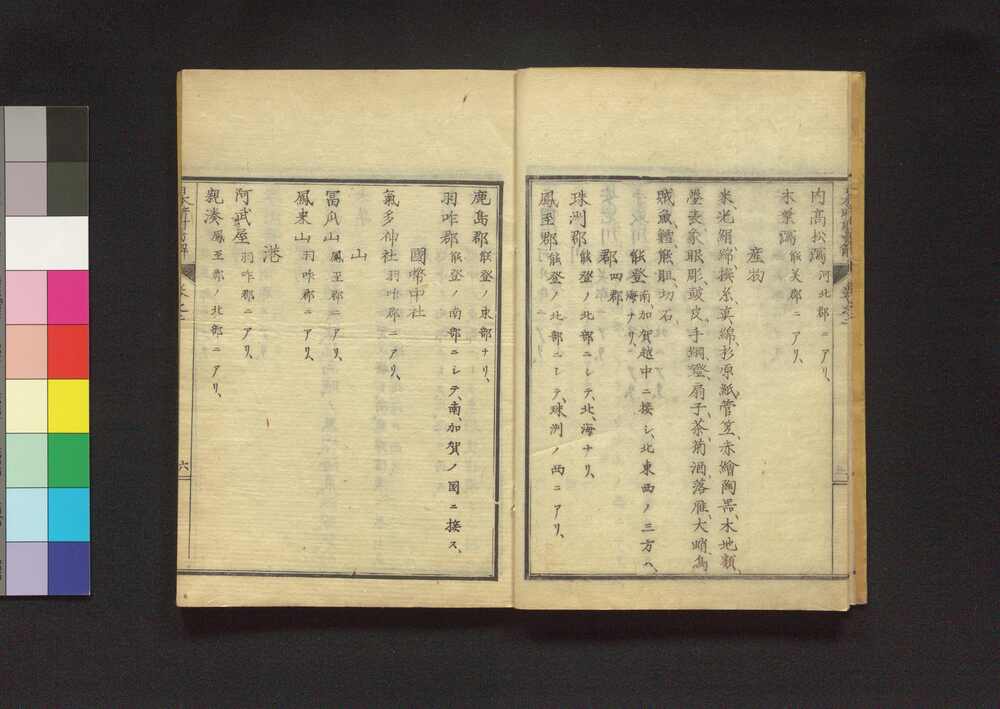 内髙松潟河北郡ニアリ、
木葉潟能美郡ニアリ、
産物
米、光絹、綿撰糸、眞綿、杉原紙、菅笠、赤繪陶器、木地類、
塗表象眼彫、鼓皮、手綱鐙、扇子、茶、菊酒、落雁、大蛸、烏
賊、魚、鱈、熊胆、切石、
能登南加賀越中ニ接シ、北東西ノ三方ハ、
海ナリ、
郡四郡
珠洲郡能登ノ北部ニシテ、北、海ナリ、
鳳至郡能登ノ北部ニシテ、珠洲ノ西ニアリ、
鹿島郡能登ノ東部ナリ、
羽咋郡能登ノ南部ニシテ、南、加賀ノ國ニ接ス、
國幣中社
氣多神社羽咋郡ニアリ、
山
冨爪山鳳至郡ニアリ、
鳳来山羽咋郡ニアリ、
港
阿武屋羽咋郡ニアリ、
親湊鳳至郡ノ北部ニアリ、
六